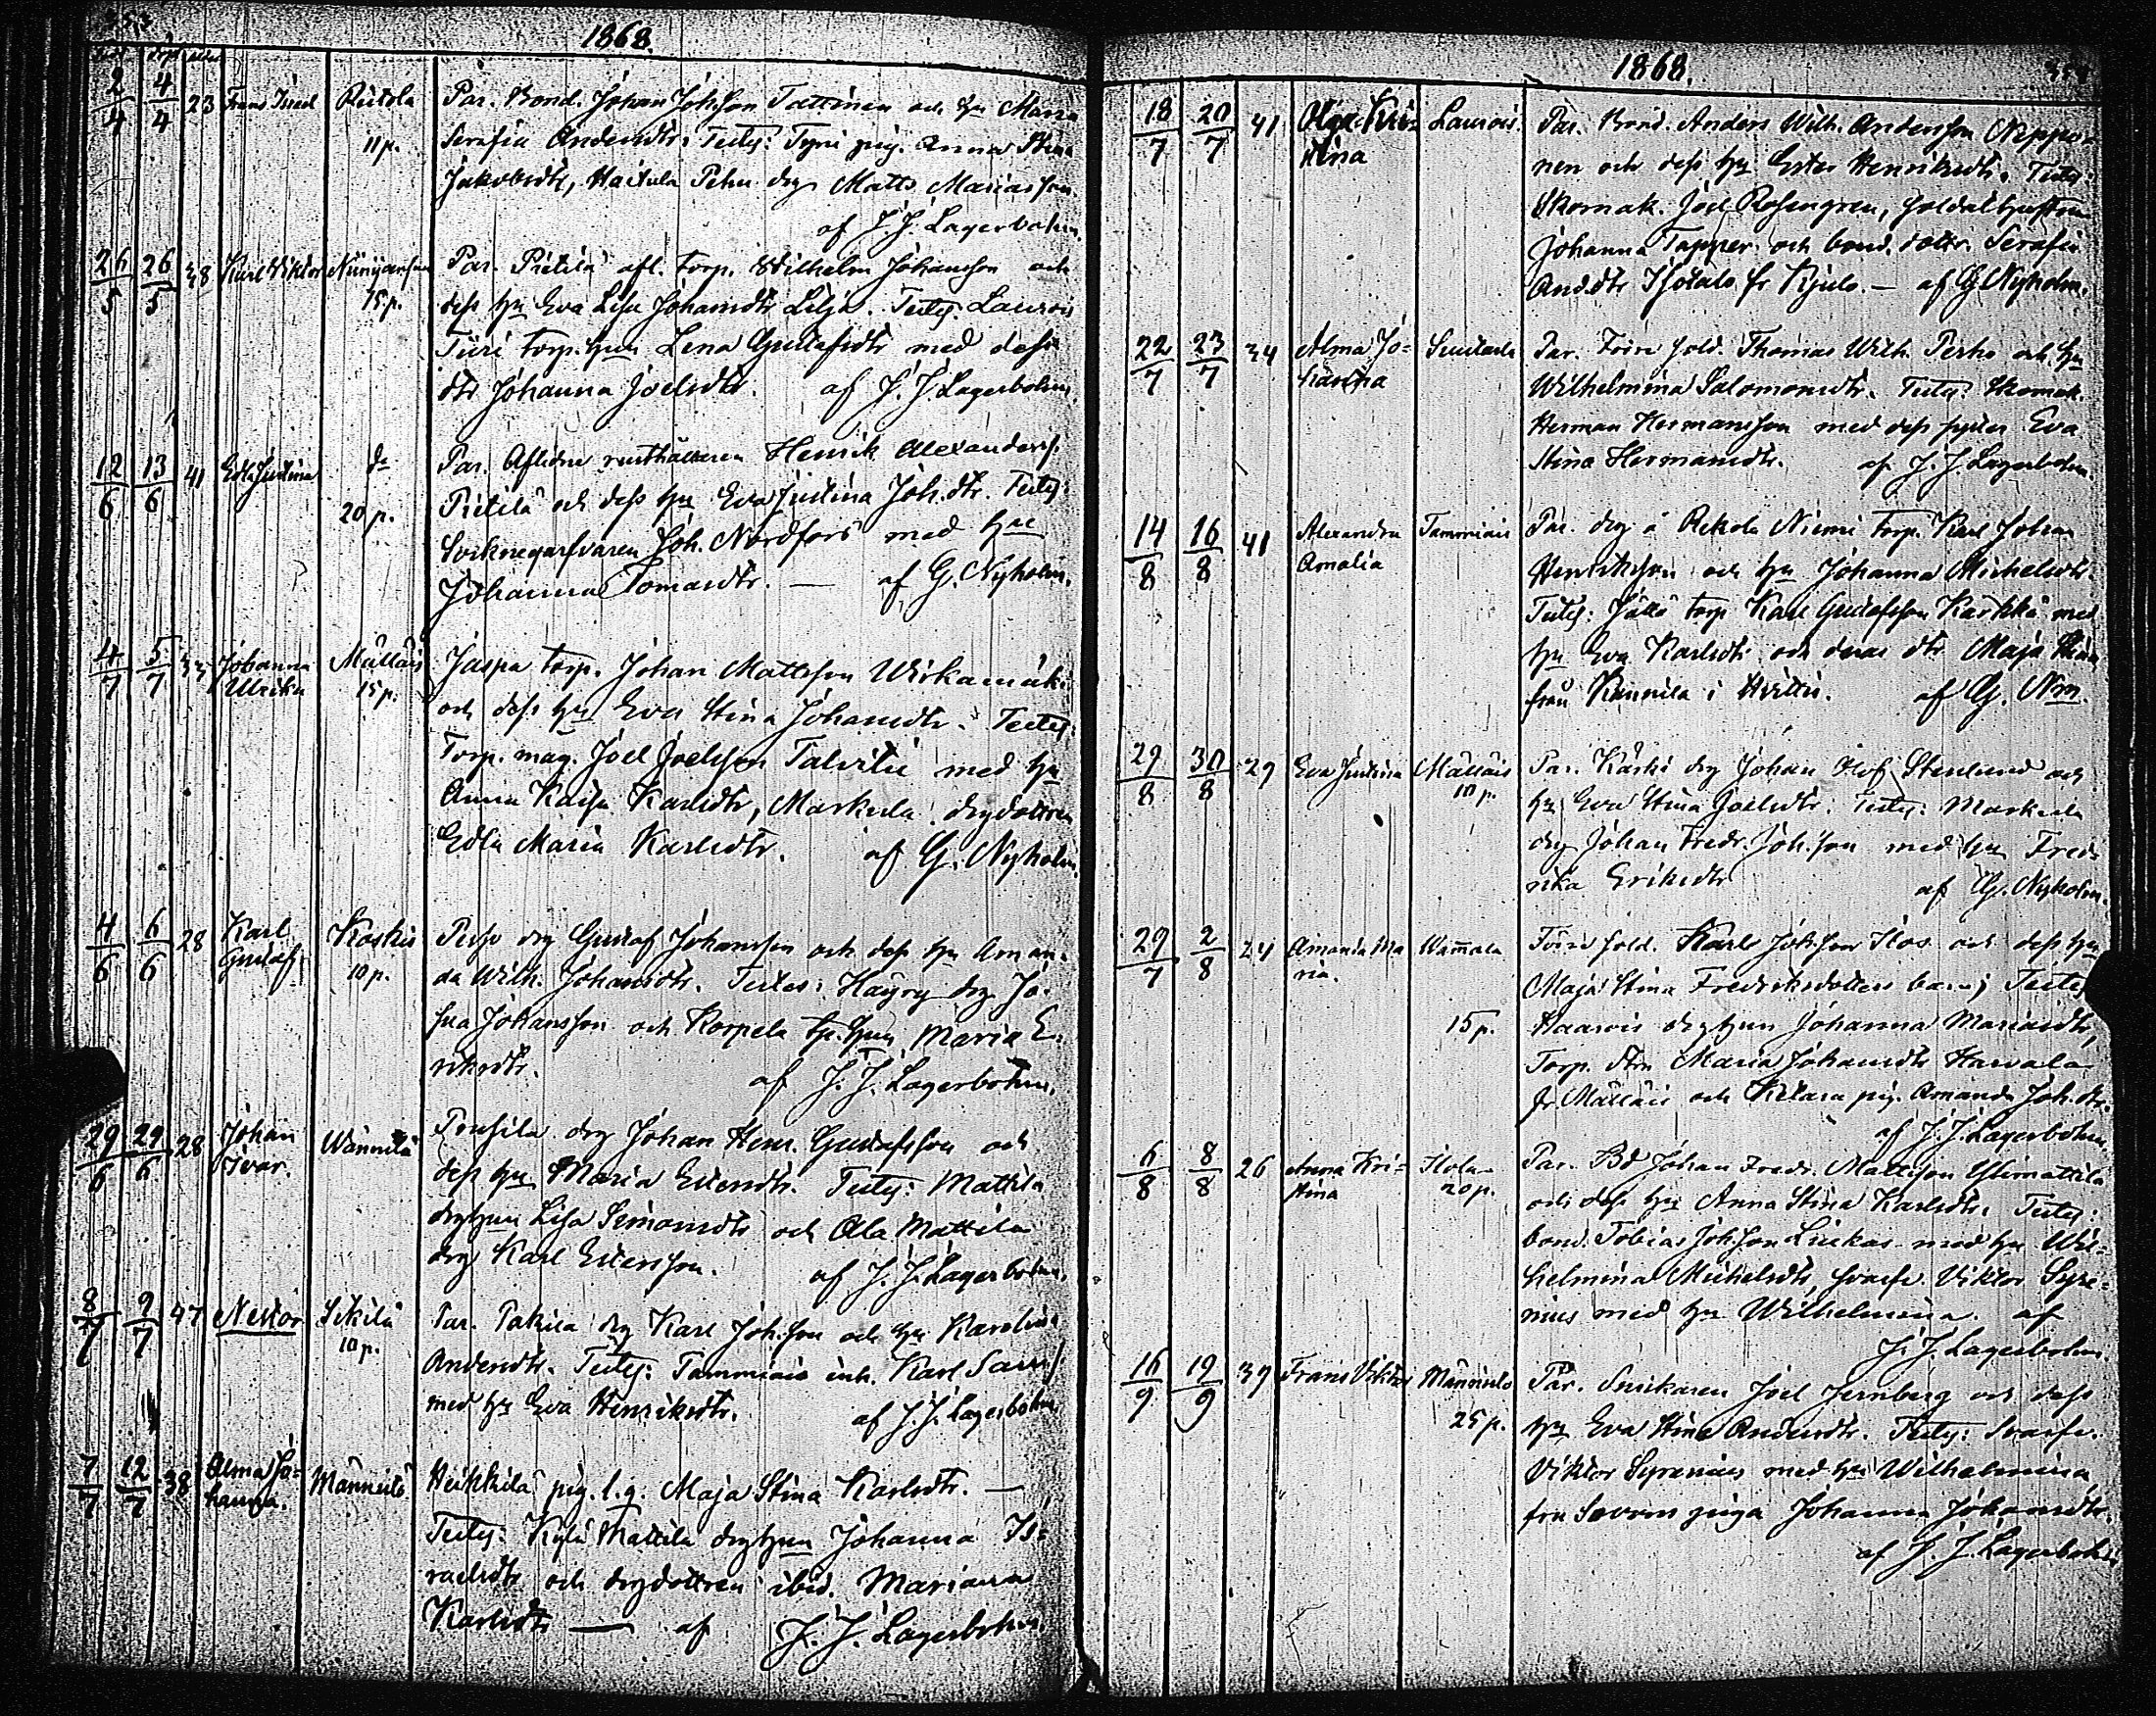 1868
2/4 4/4 23 Frans Israel
11 p.
Par. Bond. Johan Johsson Tattinen och hu Maria
Serafia Andersdtr. Testes: Tyni pig. Anna Stina
Jakobsdtr, Haitula Pehu drg Matts Mariasson.
af J. J. Lagerbohm.
26/5 26/5 38 Karl Viktor
15 p.
Par. Pietilä afl. torp. Wilhelm Johansson och
dess hu Eva Lisa Johansdtr Lilja. Testes: Laurois
torp. hun Lena Gustafsdtr med dess
dtr Johanna Joelsdtr. af J. J. Lagerbohm.
12/6 13/6 41 Edla Justina do
20 p.
Par. Aflidne rusthållaren Henrik Alexanderss.
Pietilä och dess hu Eva Justina Joh.dtr. Testes:
Socknegarfvaren Joh. Nordfors med hu
Johanna Tomasdtr. — af G. Nyholm.
4/7 5/7 Johanna Ulrika Mälläis
15 p.
Jaspa torp. Johan Mattsson Wirkamäki
och dess hu Eva Stina Johansdtr. Testes:
Torp. mag. Joel Joelsson Talvitie med hu
Anna Kaisa Karlsdtr, Markula drgdottren
Edla Maria Karlsdtr. af G. Nyholm.
4/6 6/6 28 Karl Gustaf Koskis
10 p.
drg Gustaf Johansson och dess hu Aman-
da Wilh. Johansdtr. Testes: Häyry drg Jo-
sua Johansson och Korpela hun Maria E-
riksdtr. af J. J. Lagerbohm.
29/6 29/6 28 Johan Ivar. Wännilä
drg Johan Henr. Gustafsson och
dess hu Maria Eliensdtr. Testes: Mattila
drghun Lisa Simonsdtr och Ala Mattila
drg Karl Eliensson. af J. J. Lagerbohm.
8/7 9/7 47 Nestor
10 p.
Par. Pakula drg Karl Joh.son och hu Karolina
Andersdtr. Testes: Tammiais inh. Karl
med hu Eva Henriksdtr. af J. J. Lagerbohm.
7/7 12/7 38 Alma Jo-
hanna. Männistö
Heikkilä pig. l. g. Maja Stina Karlsdtr. —
Testes: Kylä Mattila drghun Johanna Is-
raelsdtr och drgdottren ibid. Mariana
Karlsdtr — af J. J. Lagerbohm.
1868.
18/7 20/7 41 Olga Kris-
tina Laurois.
Par. Bond. Anders Wilh. Andersson Neppo-
nen och dess hu Ester Henriksdtr. Testes:
Skomak. Joel Rosengren, soldathustrun
Johanna Tapper och bond. dottr. Serafia
And.dtr Isotalo fr Kjulo. — af G. Nyholm.
22/7 23/7 34 Alma Jo-
hanna
Par. Före sold. Thomas Wilh. Pesko och hu
Wilhelmina Salomonsdtr. Testes: Skomak.
Herman Hermansson med dess syster Eva
Stina Hermansdtr. af J. J. Lagerbohm.
14/8 16/8 41 Alexandra
Amalia Tammiais
Par. drg å Rekola Niemi torp. Karl Johan
Henriksson och hu Johanna Michelsdtr.
Testes: torp Karl Gustafsson Kärkkä med
hu Eva Karlsdtr och deras dtr Maja Stina
från Kännilä i Hvittis. af G. Nm.
29/8 30/8 29 Eva Justina Mälläis
10 p.
Par. Käski drg Johan Olof Stenlund och
hu Eva Stina Joelsdtr. Testes: Markula
drg Johan Fredr. Joh.son med hu Fred-
rika Eriksdtr af G. Nyholm.
29/7 2/8 24 Amanda Ma-
ria. Wammala
15 p.
Förre sold. Karl Joh.son Ilos och dess hu
Maja Stina Fredriksdotters barn; Testes:
Haarois drghun Johanna Mariasdtr,
Torp. dtrn Maria Johansdtr Harvala
fr. Mälläis och Kilara pig. Amanda Joh.dtr.
af J. J. Lagerbohm.
6/8 8/8 26 Anna Kri-
stina
20 p.
Par. Bd Johan Fredr. Mattsson Ylimattila
och dess hu Anna Stina Karlsdtr. Testes:
bond. Tobias Joh.son Liukas med hu Wil-
helmina Michelsdtr, Viktor Syre-
nius med hu Wilhelmina. af
J. J. Lagerbohm.
16/9 19/9 39 Frans Viktor Männistö
25 p.
Par. Snickaren Joel Jernberg och dess
hu Eva Stina Andersdtr. Testes:
Viktor Syrenius med hu Wilhelmina
från piga Johanna Johansdtr.
af J. J. Lagerbohm